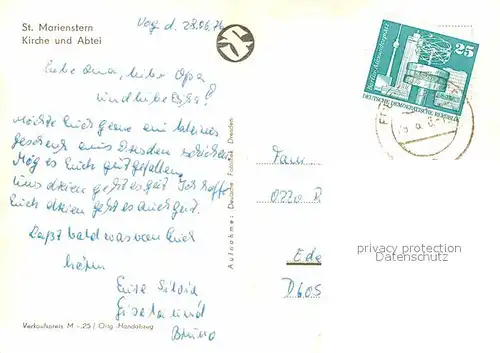 St. Marienstern
Kirche und Abtei
d. 28.06.76
Liebe Oma, lieber Opa
und liebe
Möchte Euch gerne ein kleines
Geschenk aus Dresden schicken
Mög es Euch gut gefallen
Uns dreien geht es gut Ich hoffe
Euch dreien geht es auch gut.
Laßt bald was von Euch
hören
Eure Silvia
Gisela und
Bruno
Verkaufspreis M -.25 / Orig.-Handabzug
Aufnahme: Deutsche Fotothek Dresden
25
DEUTSCHE DEMOKRATISCHE REPUBLIK
Fam.
privacy protection
Datenschutz